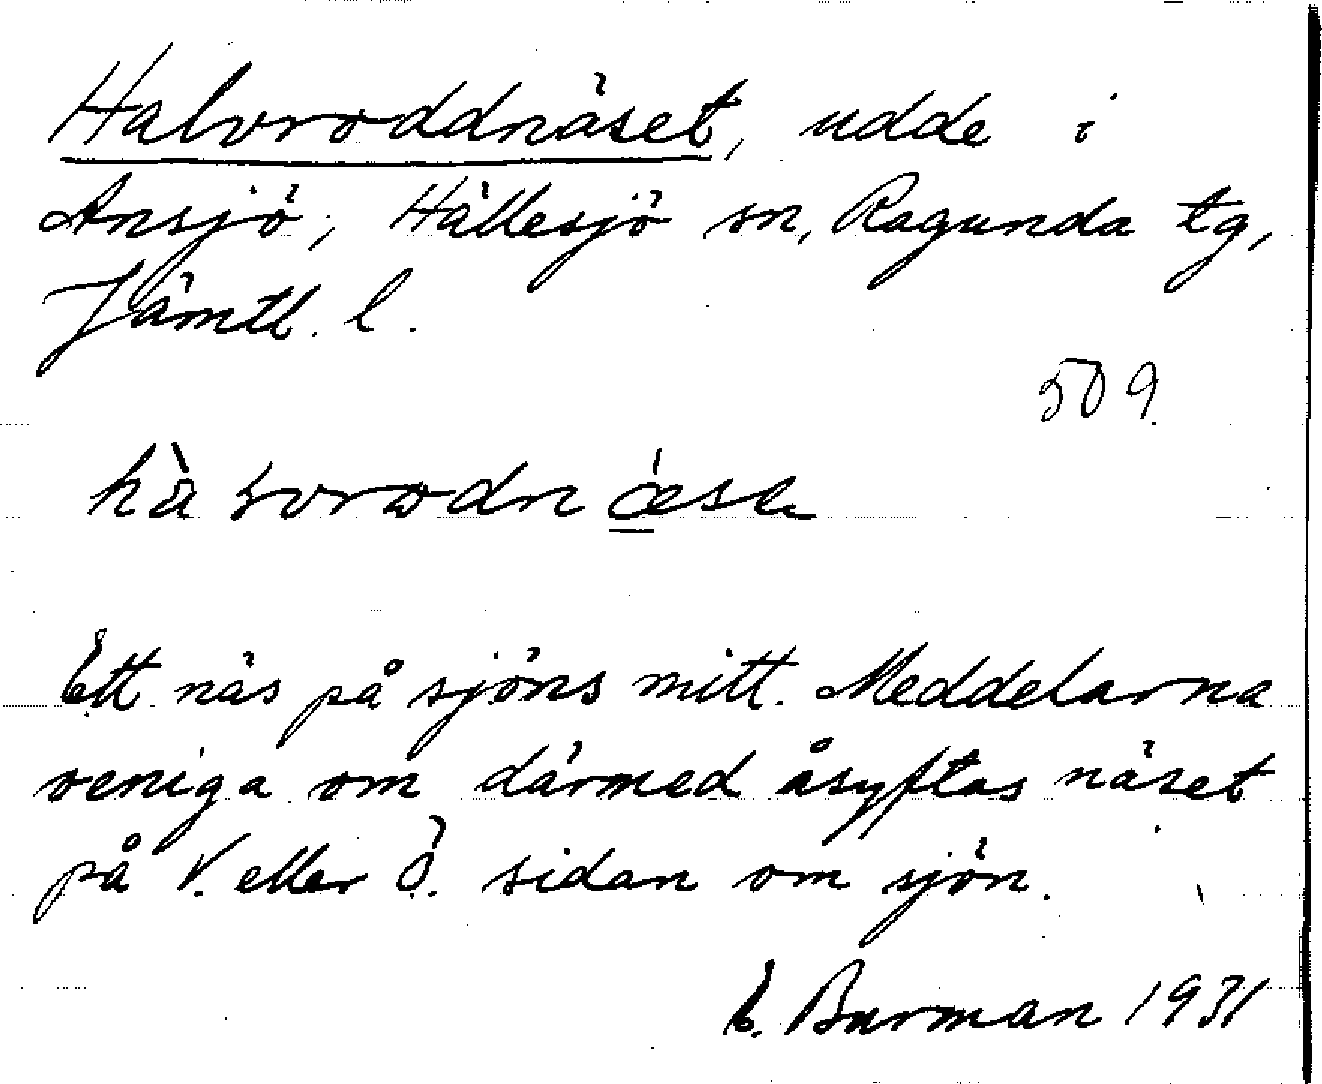 Halvroddnäset, udde i
Ansjö, Hällesjö sn, Ragunda tg,
Jämtl. l.
509
Ett näs på sjöns mitt. Meddelarna
oeniga om därmed åsyftas näset
på V. eller Ö. sidan om sjön.
E. Burman 1931